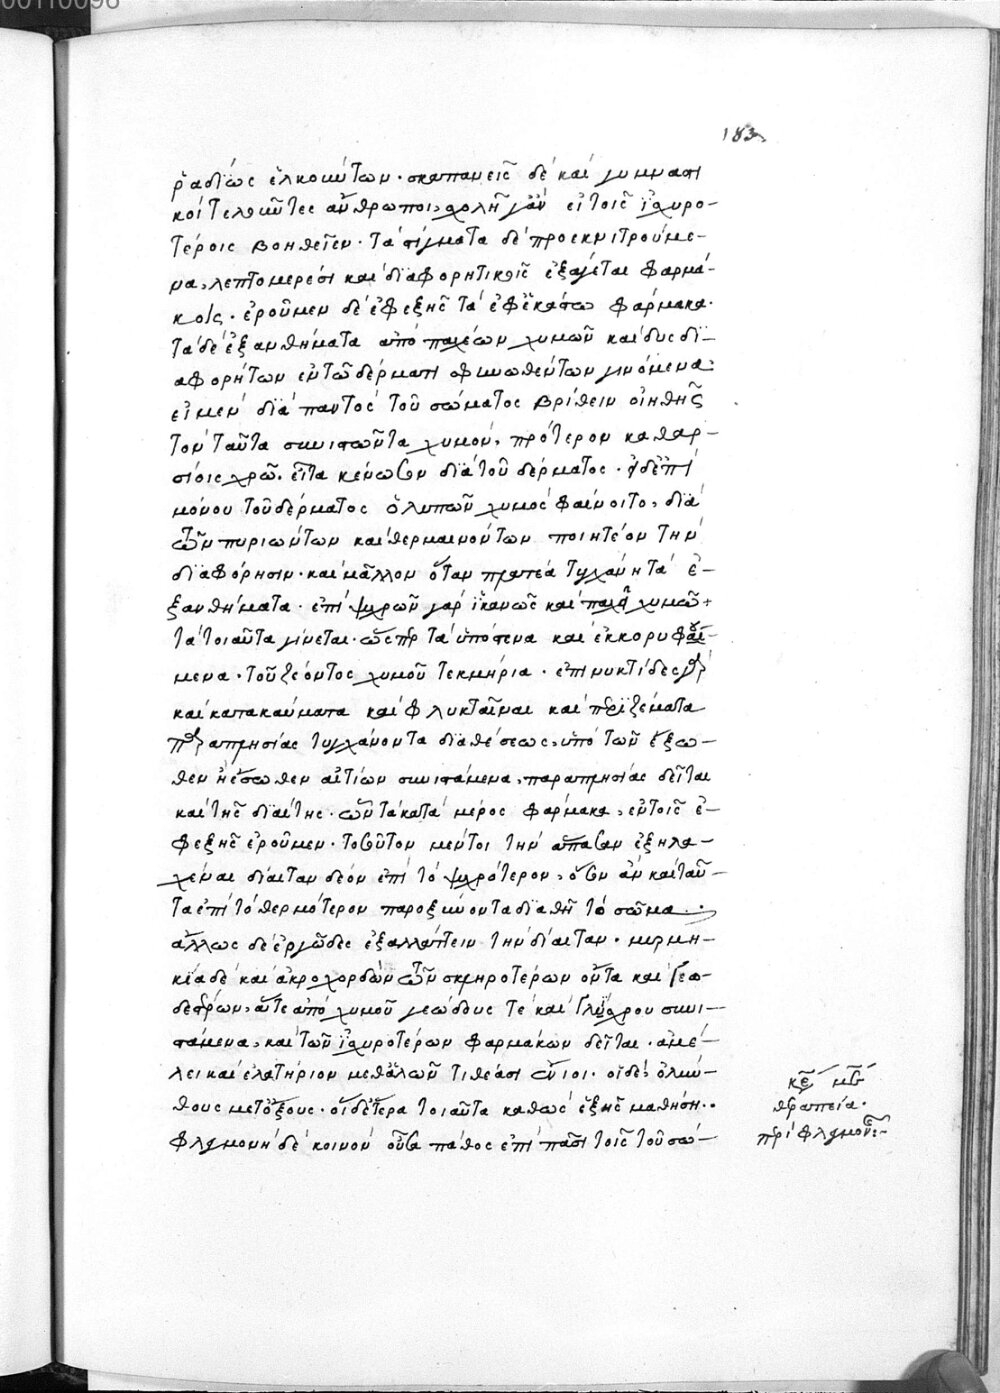 183
ῥαδίως ἑλκοιώντων. σκαπανεῖς δὲ καὶ γυμνασι
κοί τελοῦντες ἄνθρωποι, σχολῇ γἂν εἰ τοῖς ἰσχυρο-
τέροις βοηθεῖεν. τὰ στίγματα δὲ προεκνιτρούμε-
να, λεπτομερέσι καὶ διαφορητικοῖς ἐξάγεται φαρμά-
κοις. ἐροῦμεν δὲ ἐφεξῆς τὰ ἐφ' ἑκάστω φάρμακα.
τὰ δὲ ἐξανθήματα ἀπὸ παχέων χυμῶν καὶ δυσδι-
αφορήτων ἐν τῶ δέρματι σφηνωθέντων γινόμενα:
εἰ μὲν διὰ παντὸς τοῦ σώματος βρίθειν οἰηθῇς
τὸν ταῦτα συνιστῶντα χυμόν, πρότερον καθαρ-
σίοις χρῶ. εἶτα κένωσον διὰ τοῦ δέρματος. εἰ δ' ἐπὶ
μόνου τοῦ δέρματος ὁ λυπῶν χυμὸς φαίνοιτο, διὰ
τῶν πυριώντων καὶ θερμαινόντων ποιητέον τὴν
διαφόρησιν. καὶ μᾶλλον ὅταν πλατέα τυγχάνη τὰ ἐ-
ξανθήματα. ἐπὶ ψυχρῶν γὰρ ἱκανῶς καὶ παχέων χυμῶν
τὰ τοιαῦτα γίνεται. ὥσπερ τὰ ὑπόστενα καὶ ἐκκορυφού-
μενα. τοῦ ζέοντος χυμοῦ τεκμήρια. ἐπινυκτίδες δὲ
καὶ κατακαύματα καὶ φλύκταιναι καὶ περιζέματα
παραπλησίας τυγχάνοντα διαθέσεως, ὑπὸ τῶν ἔξω-
θεν ἢ ἔσωθεν αἰτίων συνιστάμενα, παραπλησίας δεῖται
καὶ τῆς διαίτης. ὧν τὰ κατὰ μέρος φάρμακα, ἐν τοῖς ἐ-
φεξῆς ἐροῦμεν. τοσοῦτον μέντοι τὴν ἅπασαν ἐξηλα-
χέναι δίαιταν δέον ἐπὶ τὸ ψυχρότερον, ὅσον ἂν καὶ ταῦ-
τα ἐπὶ τὸ θερμότερον παροξύνοντα διαθῆ τὸ σῶμα.
ἄλλως δὲ ἐργῶδες ἐξαλλάττειν τὴν δίαιταν. μυρμη-
κία δὲ καὶ ἀκροχορδὼν τῶν σκληροτέρων ὄντα καὶ γεω-
δεστέρων, ἅτε ἀπὸ χυμοῦ γεώδους τε καὶ γλίσχρου συνι-
στάμενα, καὶ τῶν ἰσχυροτέρων φαρμάκων δεῖται. ἀμέ-
λει καὶ ἐλατήριον μεθ' ἁλῶν τιθέασι ἔνιοι. οἱ δὲ, ὀλύν-
θους μετ' ὄξους. οἱ δ' ἕτερα τοιαῦτα καθὼς ἑξῆς μαθήση.
φλεγμονὴ δὲ κοινὸν οὖσα πάθος ἐπὶ πᾶσι τοῖς τοῦ σώ-
θεραπεία.
περὶ φλεγμονῆς:-